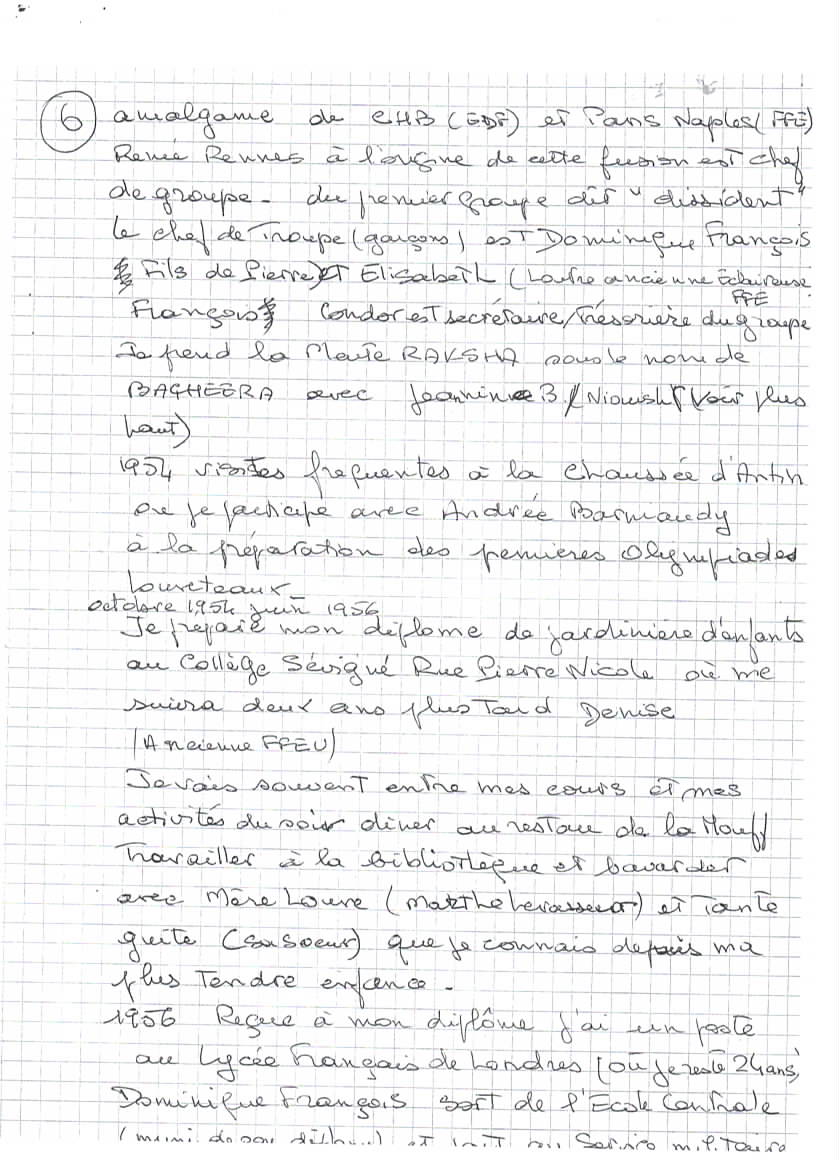 6 amalgame de CHB (EDF) et Paris Naples (FFE)
Renée Rennes à l'origine de cette fusion est chef
de groupe - du premier groupe dit "dissident"
le chef de Troupe (garçons) est Dominique François
Fils de Pierre ET Elisabeth (Loutre ancienne Eclaireuse
FFE
François Condor est secrétaire/Trésorière du groupe
Je prend la Meute RAKSHA sous le nom de
BAGHEERA avec Jeannine B (Voir plus
haut)
1954 visites frequentes à la chaussée d'Antin
ou je participe avec Andrée Barniaudy
à la préparation des premières Olympiades
Louveteaux
octobre 1954 juin 1956
Je prepare mon diplome de jardinière d'enfants
au Collège Sévigné Rue Pierre Nicole où me
suivra deux ans plus Tard Denise
(Ancienne FFEU)
Je vais souvent entre mes cours et mes
activités du soir diner au restau de la Mouff
Travailler à la bibliothèque et bavarder
avec Mère Louve (Marthe Levasseur) et Tante
guite (sa soeur) que je connais depuis ma
plus Tendre enfance -
1956 Reçue à mon diplôme j'ai un poste
au Lycée Français de Londres (où je reste 24 ans)
Dominique François sort de l'Ecole Centrale
(muni de son diplôme) et fait son Service militaire